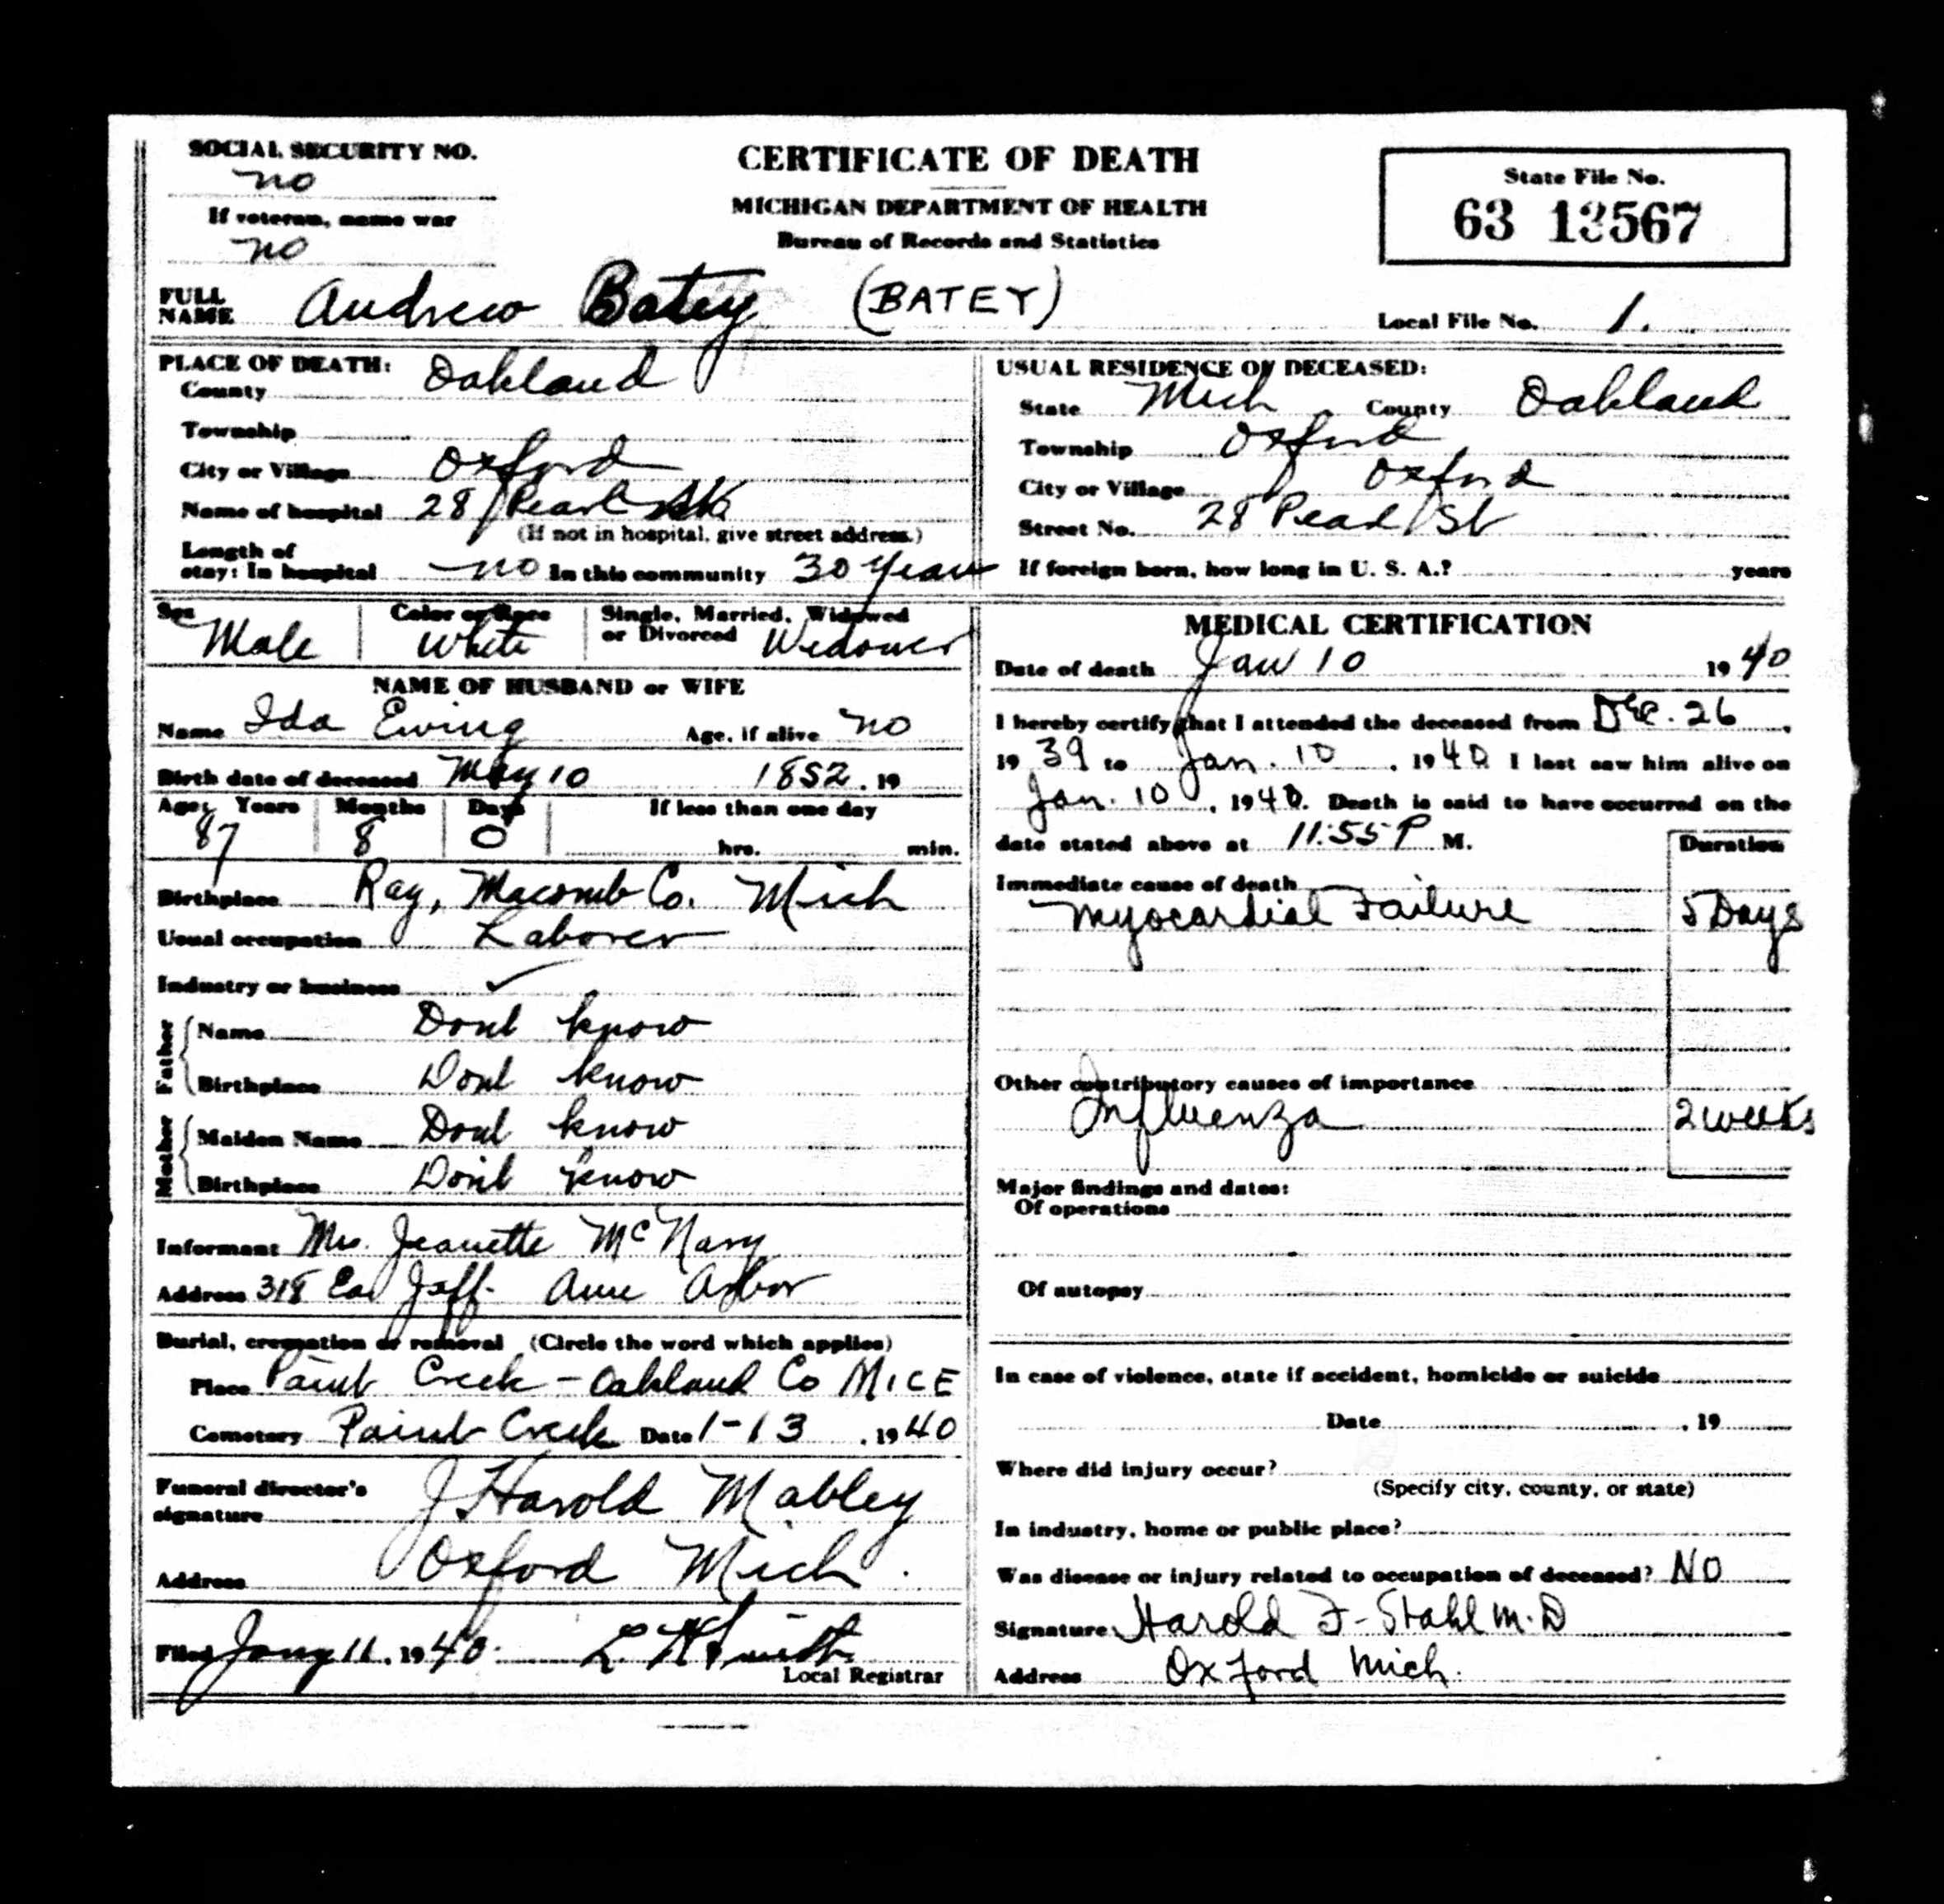 SOCIAL SECURITY NO.
no
If veteran, name war
no
CERTIFICATE OF DEATH
MICHIGAN DEPARTMENT OF HEALTH
Bureau of Records and Statistics
State File No.
63 13567
FULL NAME Andrew Batey (BATEY)
Local File No. 1.
PLACE OF DEATH:
County Oakland
Township
City or Village Oxford
Name of hospital 28 Pearl
(If not in hospital, give street address.)
Length of stay: In hospital no In this community 30 years
USUAL RESIDENCE OF DECEASED:
State Mich County Oakland
Township Oxford
City or Village Oxford
Street No. 28 Pearl St
If foreign born, how long in U. S. A.? years
Sex Male
Color or Race White
Single, Married, Widowed or Divorced Widower
NAME OF HUSBAND or WIFE
Name Ida Ewing Age, if alive no
Birth date of deceased May 10 1852, 19
Age: Years Months Days If less than one day
87 8 0 hrs. min.
Birthplace Ray, Macomb Co. Mich
Usual occupation Laborer
Industry or business ✓
Father
Name Dont know
Birthplace Dont know
Mother
Maiden Name Dont know
Birthplace Dont know
Informant Mrs. Jeanette McNary
Address 318 Ea Jeff. Ann Arbor
Burial, cremation or removal (Circle the word which applies)
Place Paint Creek - Oakland Co MICH
Cemetery Paint Creek Date 1-13, 1940
Funeral director's signature J Harold Mabley
Address Oxford Mich.
Filed Jany 11, 1940. Smith
Local Registrar
MEDICAL CERTIFICATION
Date of death Jan 10 1940
I hereby certify that I attended the deceased from Dec. 26,
1939 to Jan. 10, 1940 I last saw him alive on
Jan. 10, 1940. Death is said to have occurred on the
date stated above at 11:55 P M.
Duration
Immediate cause of death
Myocardial Failure 5 Days
Other contributory causes of importance
Influenza 2 weeks
Major findings and dates:
Of operations
Of autopsy
In case of violence, state if accident, homicide or suicide
Date , 19
Where did injury occur?
(Specify city, county, or state)
In industry, home or public place?
Was disease or injury related to occupation of deceased? NO
Signature Harold F. Stahl M.D
Address Oxford Mich.